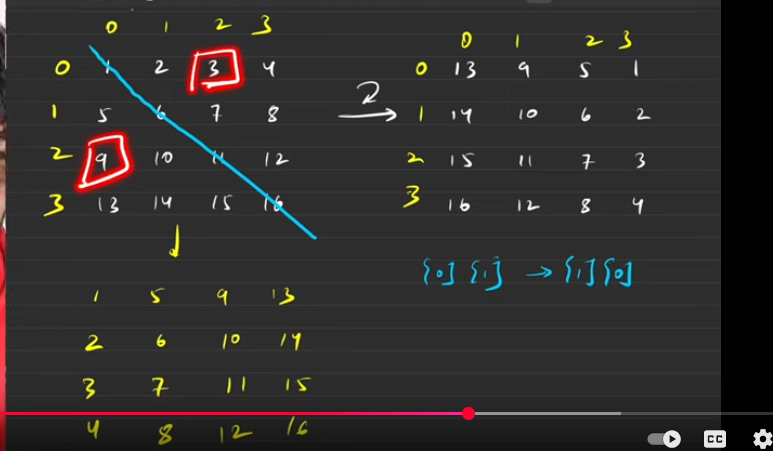 0 1 2 3
0 1 2 3 4
1 5 6 7 8
2 9 10 11 12
3 13 14 15 16
0 1 2 3
0 13 9 5 1
1 14 10 6 2
2 15 11 7 3
3 16 12 8 4
[0] [1] → [1] [0]
1 5 9 13
2 6 10 14
3 7 11 15
4 8 12 16
CC